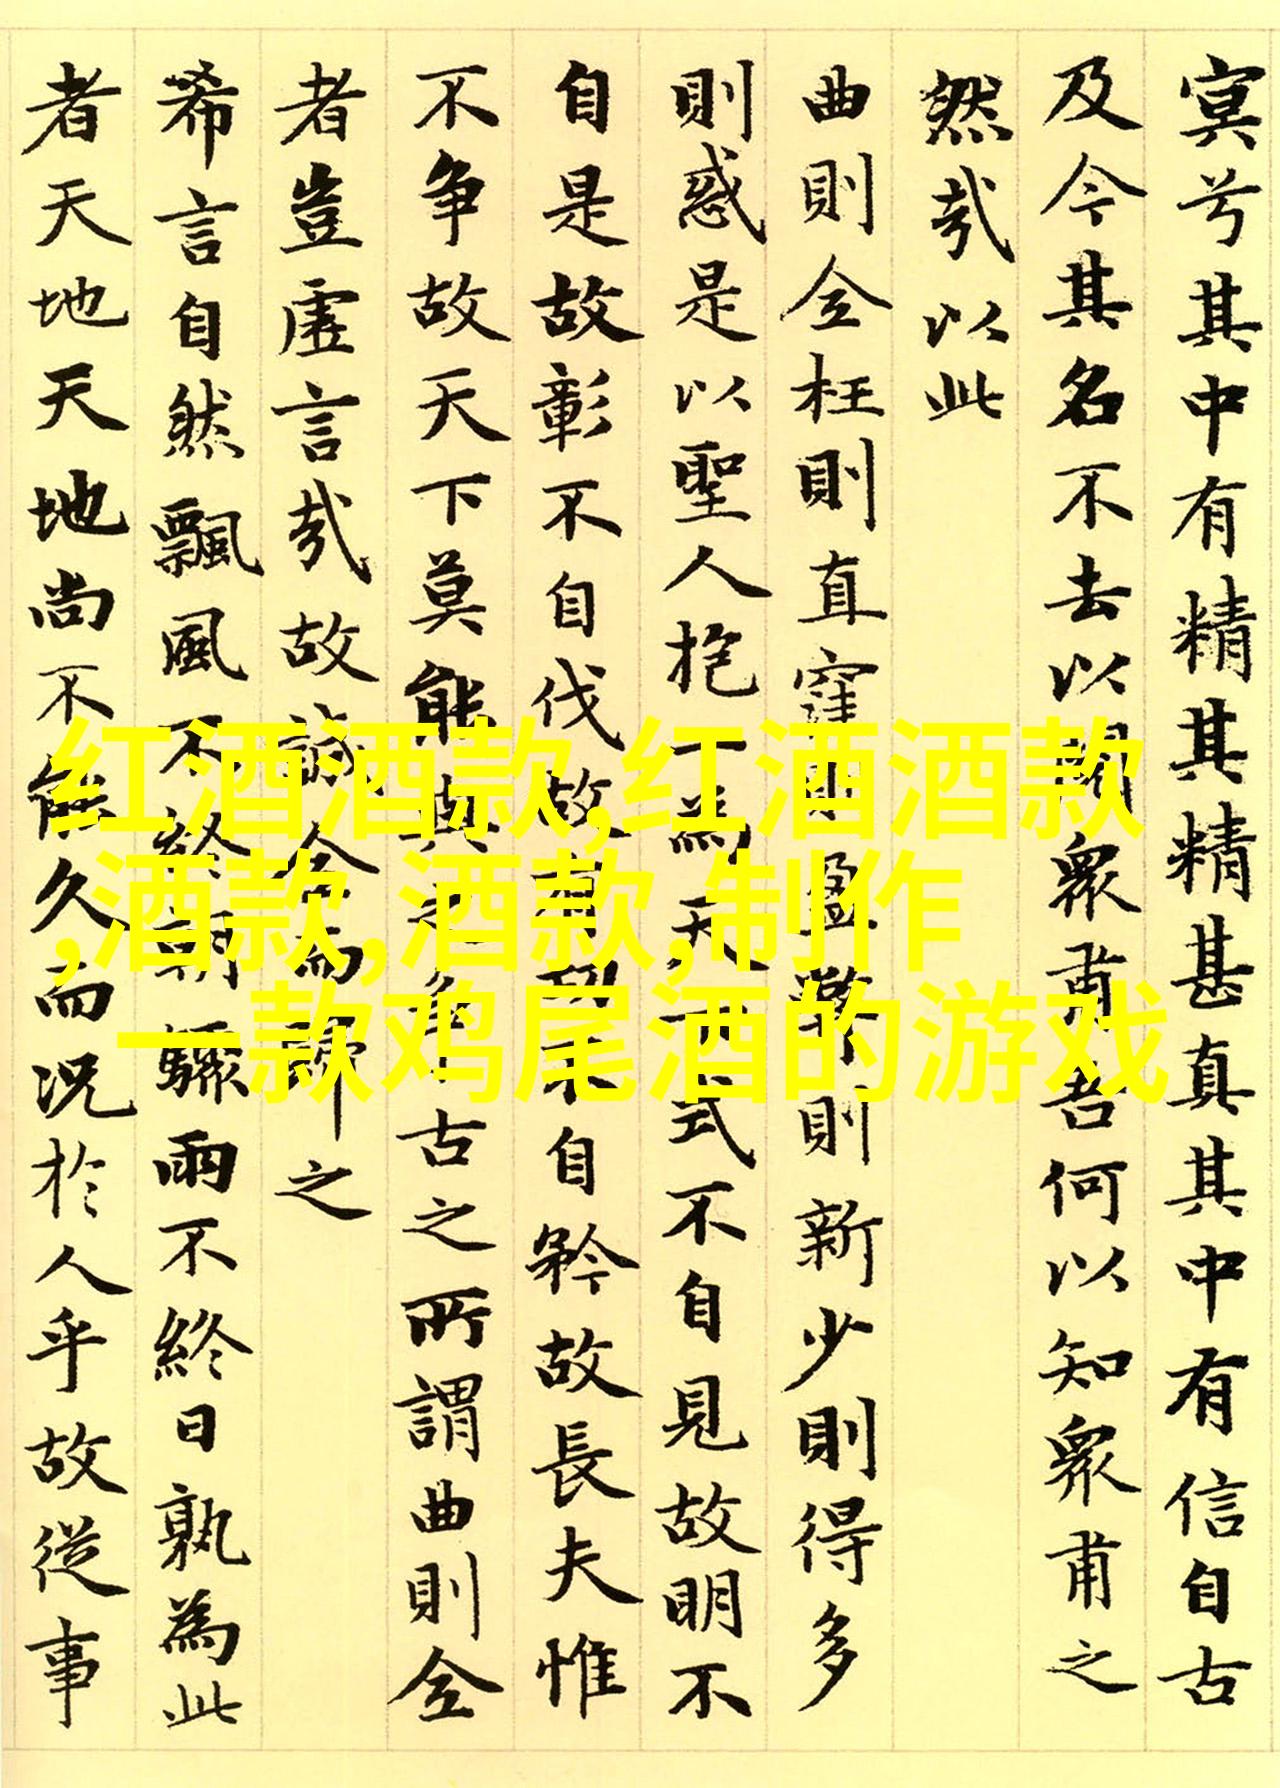 窅兮其中有精其精甚真其中有信自古
及今其名不去以閱衆甫吾何以知衆甫之
然哉以此
曲則全枉則直窪則盈弊則新少則得多
則惑是以聖人抱一為天下式不自見故明不
自是故彰不自伐故有功不自矜故長夫惟
不争故天下莫能與之争古之所謂曲則全
者豈虛言哉故誠全而歸之
希言自然飄風不終朝驟雨不終日孰為此
者天地天地尚不能久而況於人乎故從事
红酒酒款,红酒酒款
,酒款,酒款,制作
一款鸡尾酒的游戏